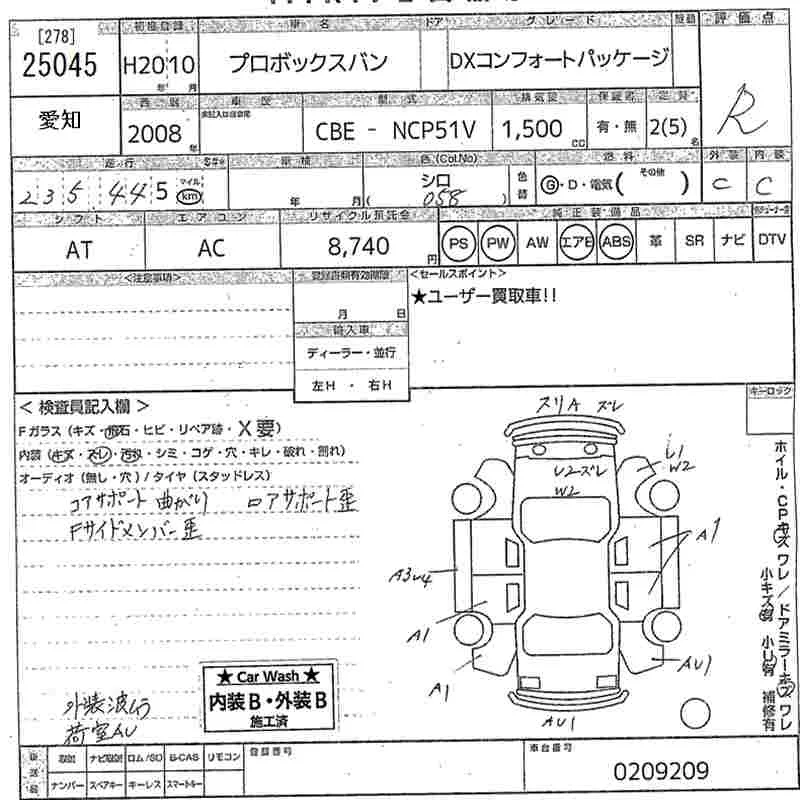 [278]
25045
初度登録
車名
ドア
グレード
評価点
H20 10
年 月
プロボックスバン
DXコンフォートパッケージ
R
愛知
西暦
車歴
型式
排気量
定員
2008年
CBE - NCP51V
1,500cc
有・無
2(5)名
走行
車検
色(Col.No)
燃料
外装
内装
235,445
マイル
km
年 月
シロ
( 058 )
色替
G・D・電気( その他 )
C
C
シフト
エアコン
リサイクル預託金
純正装備品
AT
AC
8,740円
PS
PW
AW
エアB
ABS
革
SR
ナビ
DTV
<注意事項>
登録書類有効期限
<セールスポイント>
月 日
★ユーザー買取車!!
輸入車
ディーラー・並行
左H ・ 右H
キーロック
< 検査員記入欄 >
Fガラス(キズ・飛石・ヒビ・リペア跡・X要)
内装(キズ・スレ・汚れ・シミ・コゲ・穴・キレ・破れ・割れ)
オーディオ(無し・穴)/タイヤ(スタッドレス)
コアサポート曲がり ロアサポート歪
Fサイドメンバー歪
スリA ズレ
U2ズレ
W2
U1
W2
A1
A3U4
A1
A1
AU1
AU1
ホイル・CPキズワレ/ドアミラーキズワレ
小キズ有 小U有 補修有
外装波ムラ
荷室AU
★ Car Wash ★
内装B・外装B
施工済
取説
ナビ取説
ロム/SD
B-CAS
リモコン
ナンバー
スペアキー
キーレス
スマートキー
登録番号
車台番号
0209209